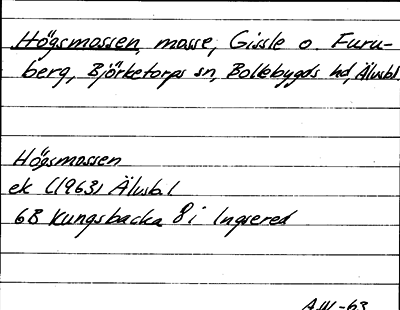 Högsmossen, mosse, Gissle o. Furu-
berg, Björketorps sn, Bollebygds hd, Älvsb.l.
Högsmossen
ek (1963) Älvsb. l
6B Kungsbacka 8 i Ingsered